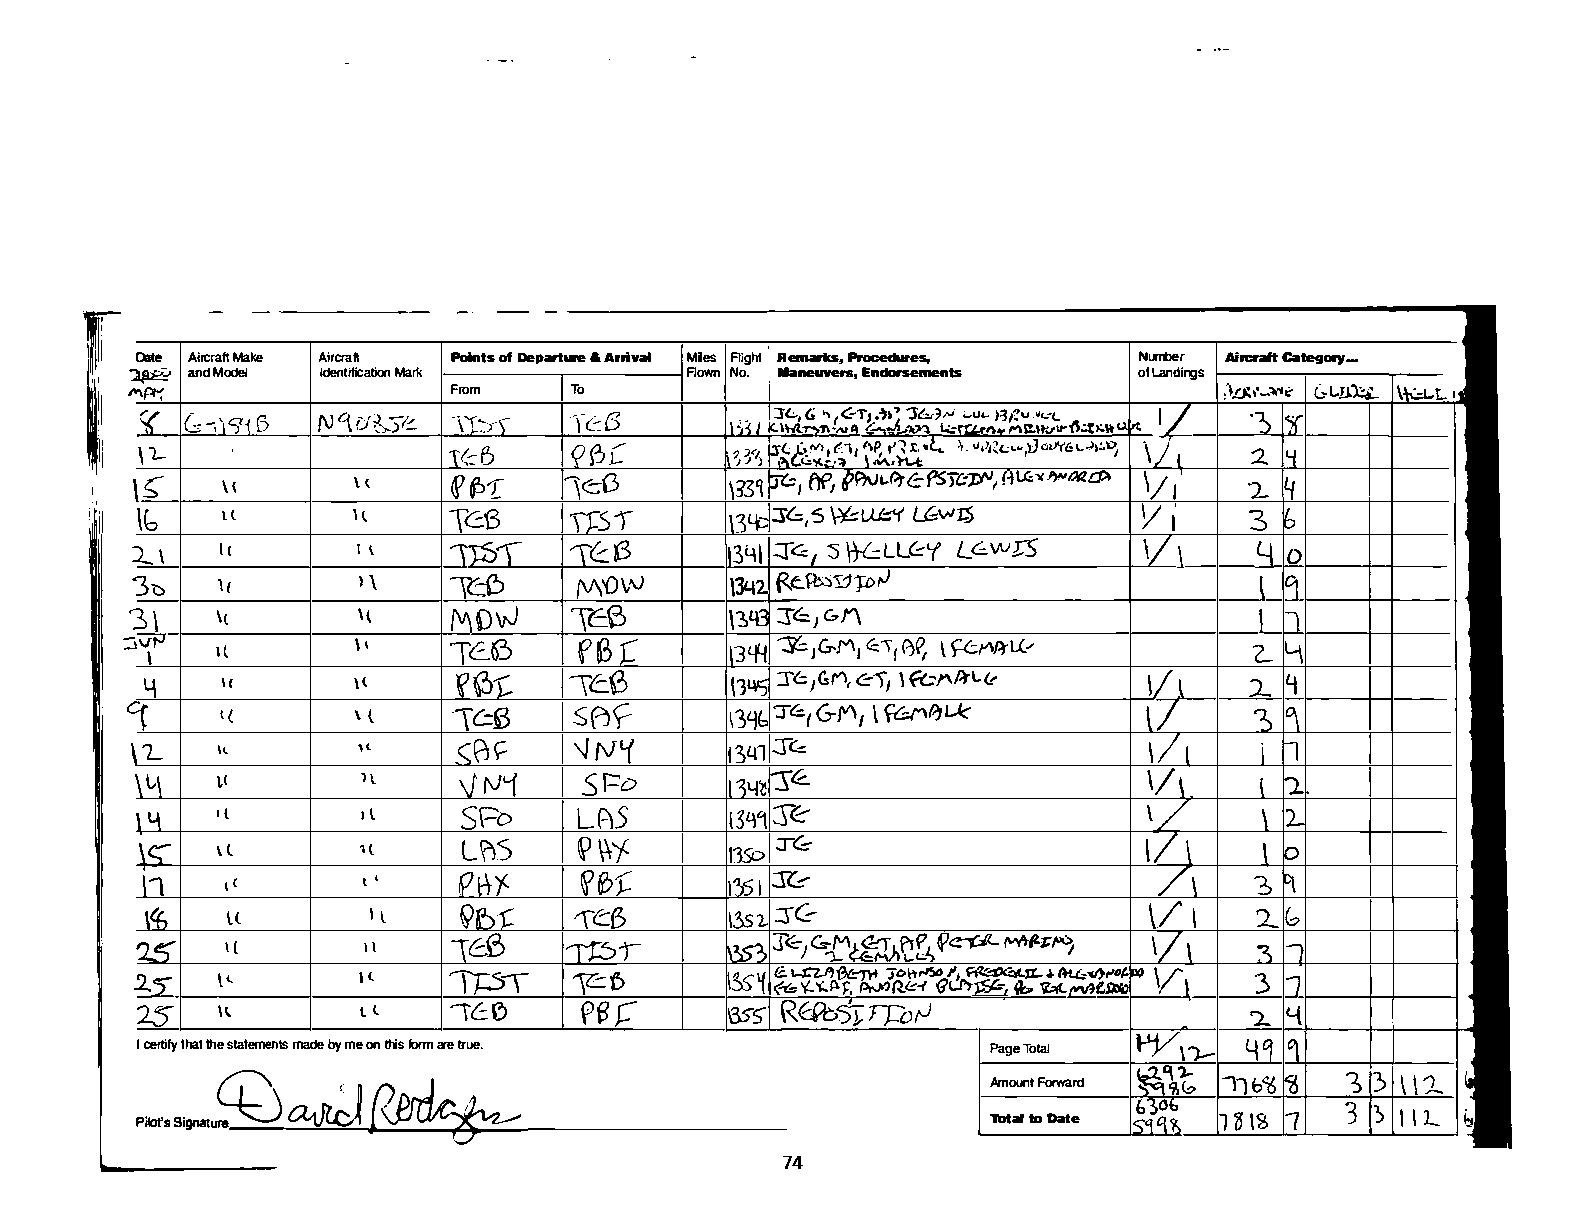 Date Aircraft Make Aircraft Points of Departure & Arrival Miles Flight Remarks, Procedures, Number Aircraft Category...
and Model Identification Mark Flown No. Maneuvers, Endorsements of Landings
MAY From To AIRPLANE GLIDER HELI
8 G-1159B N908JE TIST TEB 1337 JE, GM, ET, AP, JEAN LUC BRUNEL 1/ 3 8
12 TEB PBI 1338 JE, GM, ET, AP, 1/1 2 4
15 " " PBI TEB 1339 JE, AP, PAULA EPSTEIN, ALEXANDRIA 1/1 2 4
16 " " TEB TIST 1340 JE, SHELLEY LEWIS 1/1 3 6
21 " " TIST TEB 1341 JE, SHELLEY LEWIS 1/1 4 0
30 " " TEB MDW 1342 REPOSITION 1 9
31 " " MDW TEB 1343 JE, GM 1 7
JUN
1 " " TEB PBI 1344 JE, GM, ET, AP, 1 FEMALE 2 4
4 " " PBI TEB 1345 JE, GM, ET, 1 FEMALE 1/1 2 4
9 " " TEB SAF 1346 JE, GM, 1 FEMALE 1/ 3 9
12 " " SAF VNY 1347 JE 1/1 1 7
14 " " VNY SFO 1348 JE 1/1 1 2
14 " " SFO LAS 1349 JE 1/ 1 2
15 " " LAS PHX 1350 JE 1/1 1 0
17 " " PHX PBI 1351 JE /1 3 9
18 " " PBI TEB 1352 JE 1/1 2 6
25 " " TEB TIST 1353 JE, GM, ET, AP, PETER MARINO, 1/1 3 7
2 FEMALES
25 " " TIST TEB 1354 ELIZABETH JOHNSON, FREDERIC + ALEXANDRO 1/1 3 7
FEKKAI, ANDREY BLAISE, PETER MARINO
25 " " TEB PBI 1355 REPOSITION 2 4
I certify that the statements made by me on this form are true. Page Total 14/12 49 9
Amount Forward 6292 5986 7768 8 3 3 112
Pilot's Signature David Rodgers Total to Date 6306 5998 7818 7 3 3 112
74